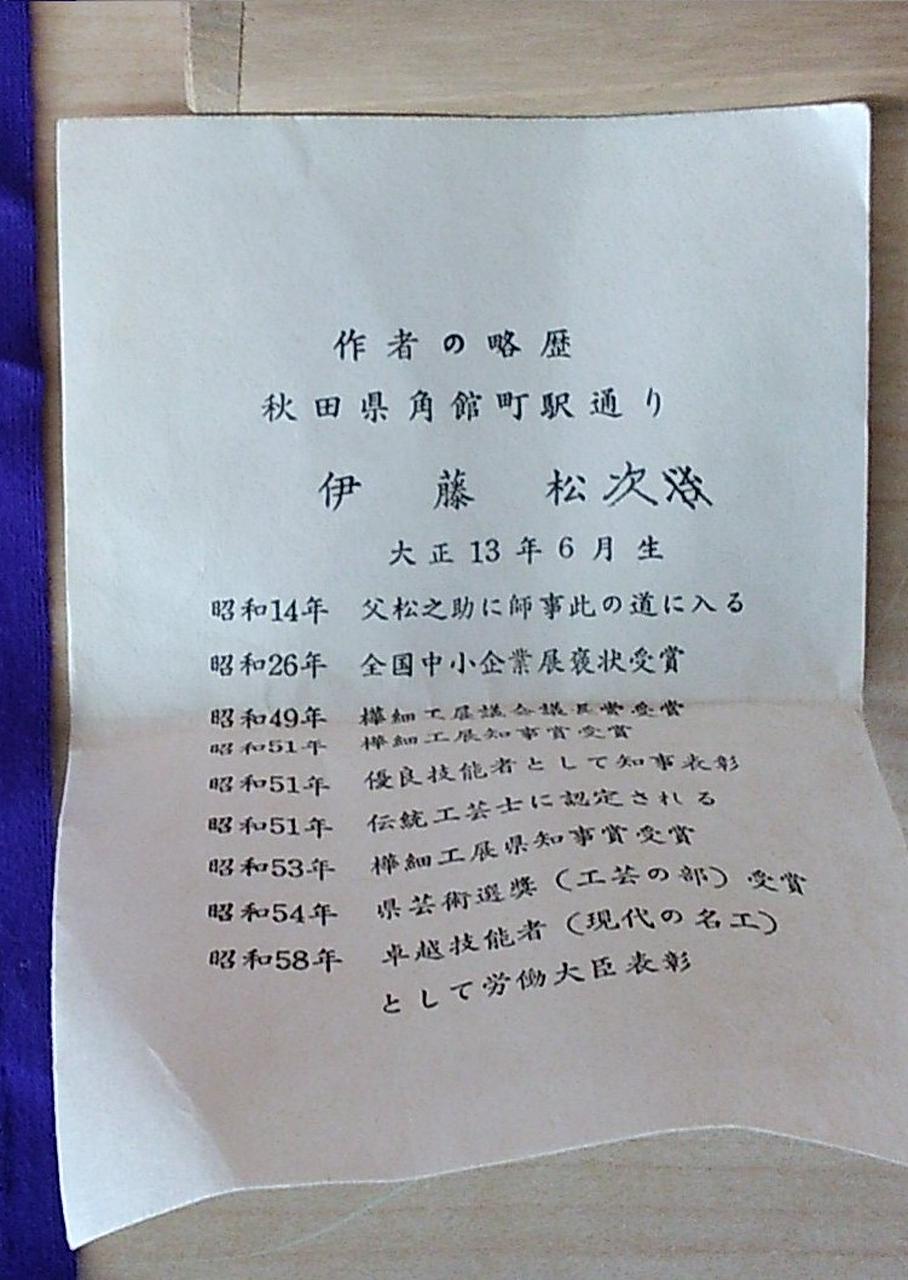 作者の略歴
秋田県角館町駅通り
伊藤松次
大正13年6月生
昭和14年 父松之助に師事此の道に入る
昭和26年 全国中小企業展褒状受賞
昭和49年 樺細工展議会議長賞受賞
昭和51年 樺細工展知事賞受賞
昭和51年 優良技能者として知事表彰
昭和51年 伝統工芸士に認定される
昭和53年 樺細工展県知事賞受賞
昭和54年 県芸術選奨（工芸の部）受賞
昭和58年 卓越技能者（現代の名工）
として労働大臣表彰